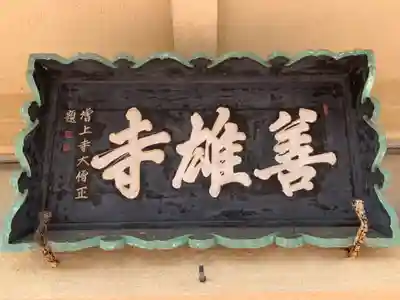 善雄寺
增上寺大僧正